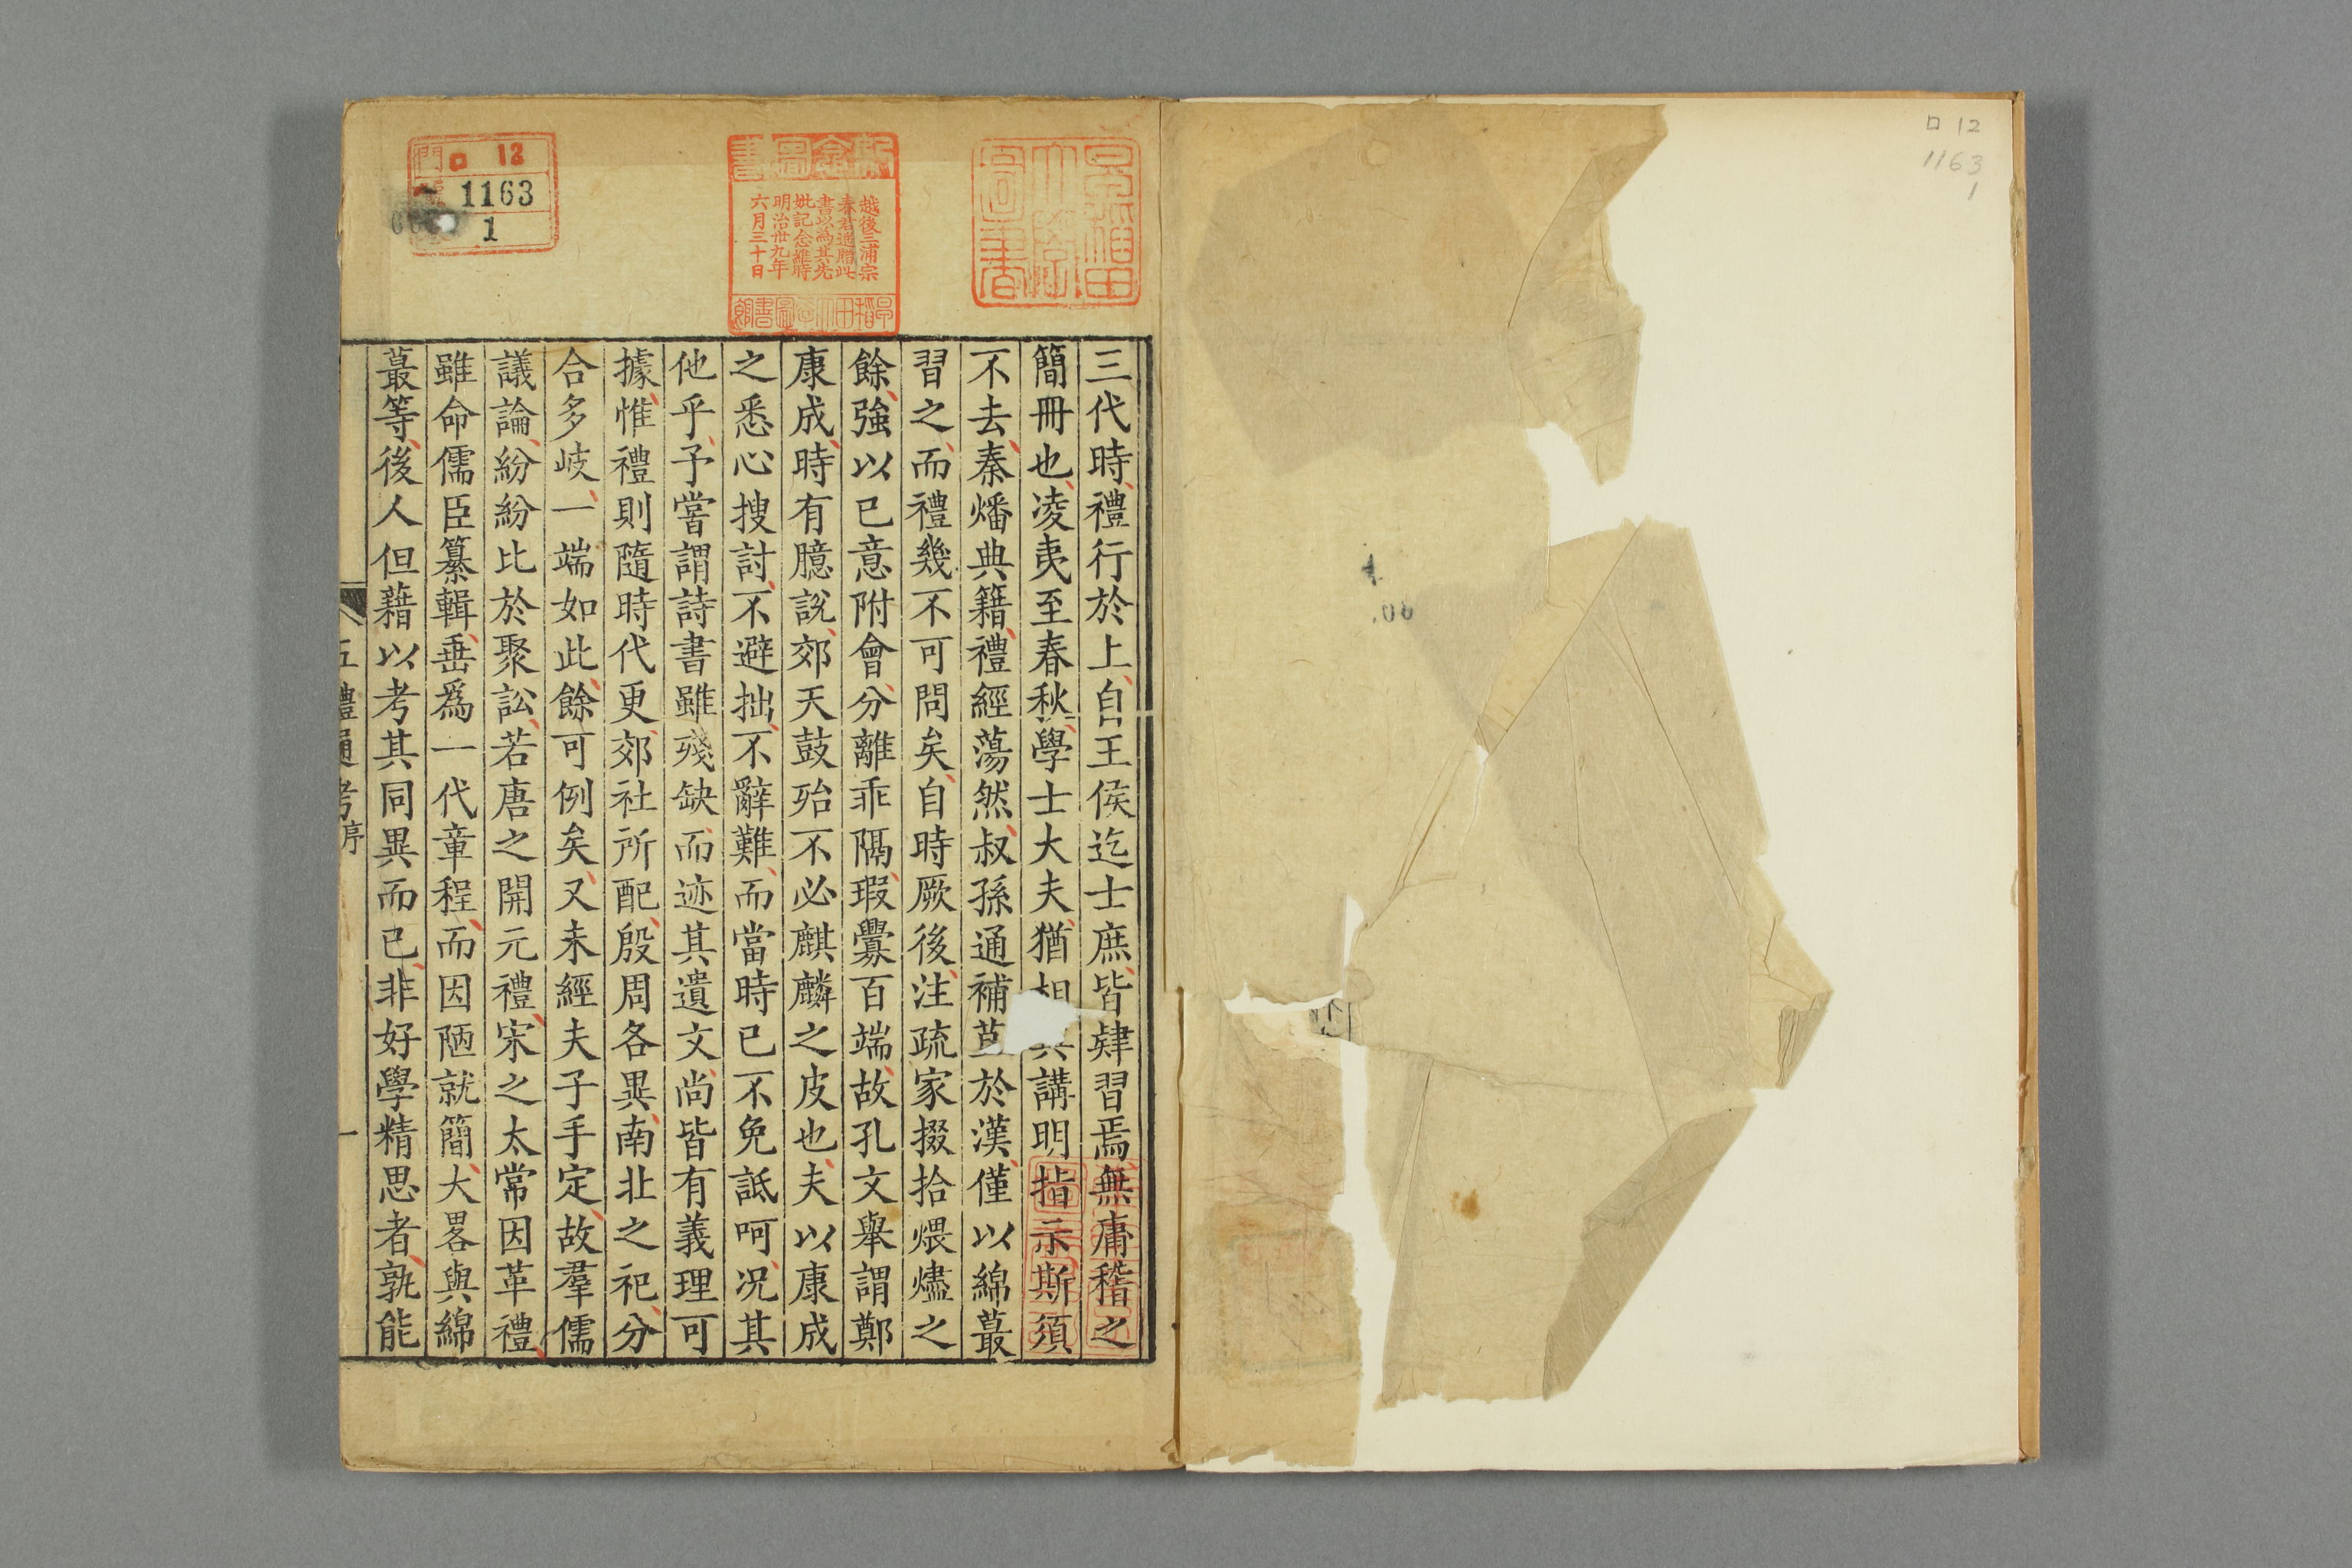 口 12
1163
1
早稲田
大學
圖書
越後三浦宗
春君追贈此
書以為其先
妣記念維時
明治卅九年
六月三十日
早稲田大學圖書館
門 口 12
號 1163
1
三代時禮行於上自王侯迄士庶皆肄習焉無庸稽之
簡冊也凌夷至春秋學士大夫猶相與講明指示斯須
不去秦燔典籍禮經蕩然叔孫通補苴於漢僅以綿蕞
習之而禮幾不可問矣自時厥後注疏家掇拾煨燼之
餘強以已意附會分離乖隔瑕釁百端故孔文舉謂鄭
康成時有臆說郊天鼓殆不必麒麟之皮也夫以康成
之悉心搜討不避拙不辭難而當時已不免詆呵况其
他乎予嘗謂詩書雖殘缺而迹其遺文尚皆有義理可
據惟禮則隨時代更郊社所配殷周各異南北之祀分
合多岐一端如此餘可例矣又未經夫子手定故羣儒
議論紛紛比於聚訟若唐之開元禮宋之太常因革禮
雖命儒臣纂輯垂爲一代章程而因陋就簡大畧與綿
蕞等後人但藉以考其同異而已非好學精思者孰能
五禮通考 序 一